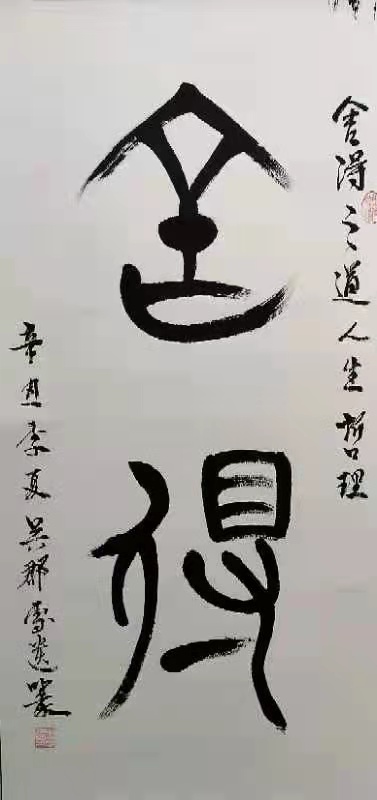 舍得之道人生哲理
舍得
辛丑季夏吴郡